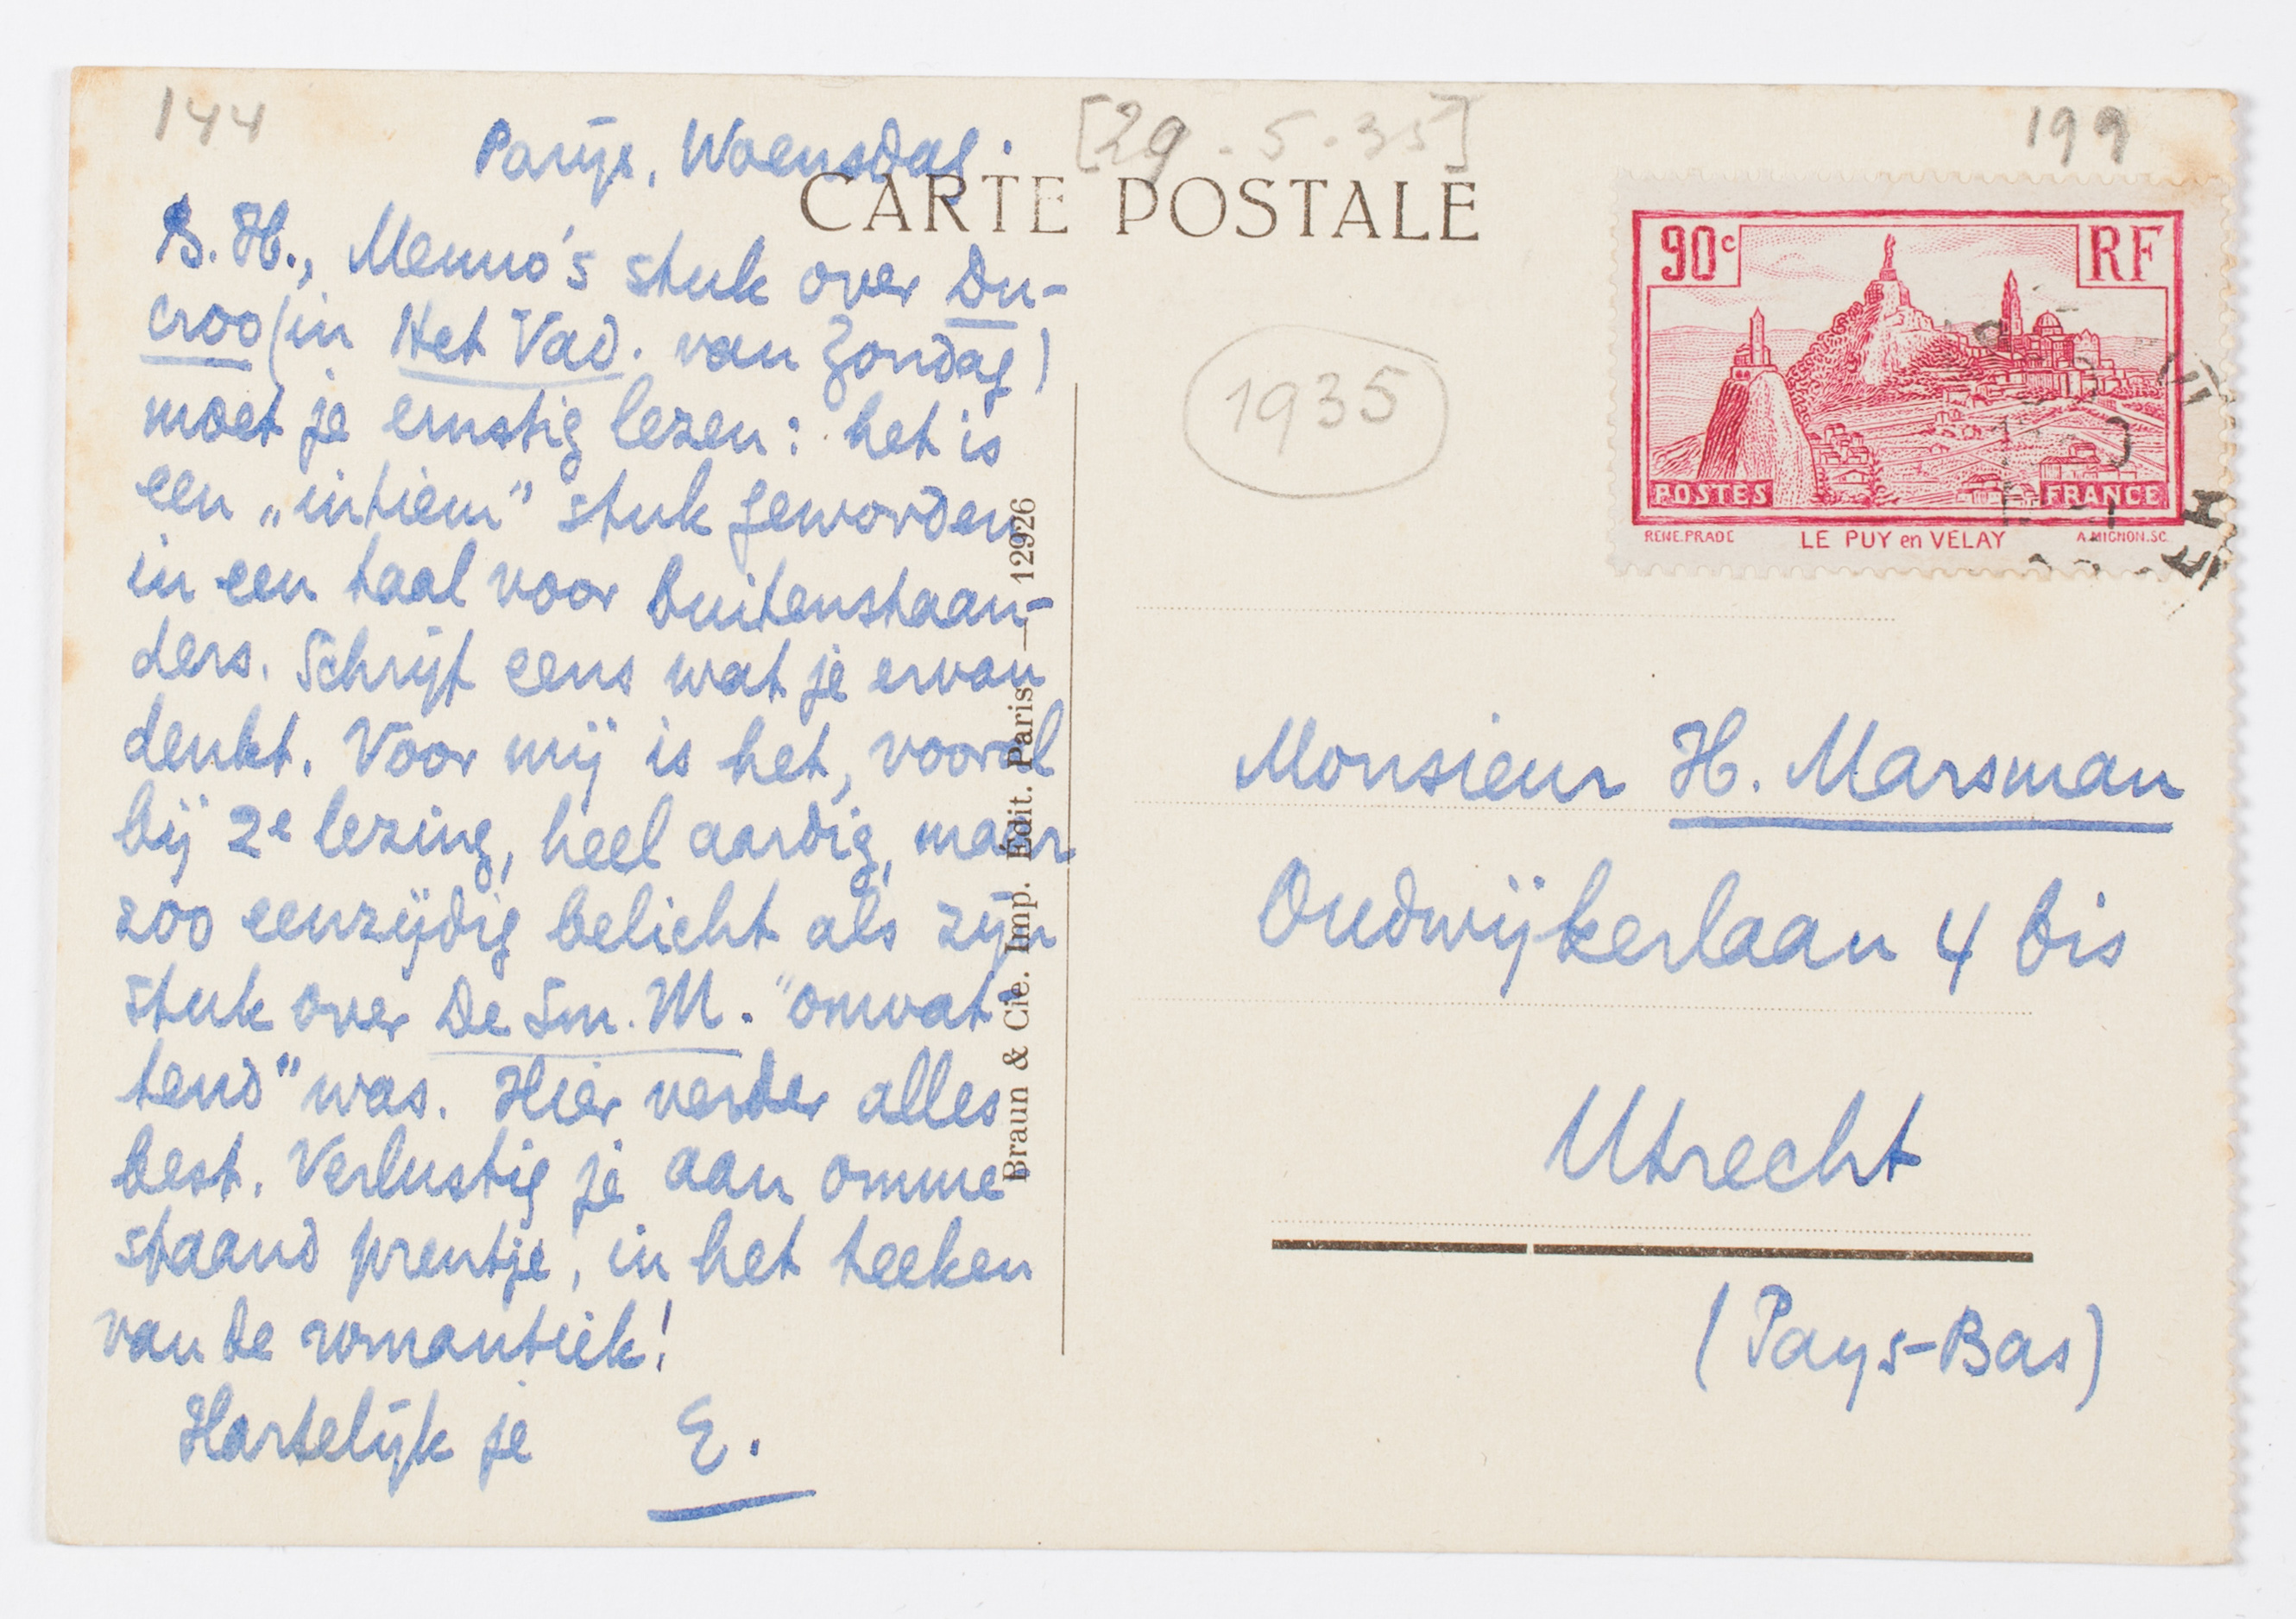 144
Parijs, Woensdag.
[29.5.35]
199
CARTE POSTALE
B.H., Menno's stuk over Du-
croo (in Het Vad. van Zondag)
moet je ernstig lezen: het is
een „intiem" stuk geworden
in een taal voor buitenstaan-
ders. Schrijf eens wat je ervan
denkt. Voor mij is het, vooral
bij 2e lezing, heel aardig, maar
zoo eenzijdig belicht als zijn
stuk over De Sm. M. "omvat-
tend" was. Hier verder alles
best. Verlustig je aan omme-
staand prentje, in het teeken
van de romantiek!
Hartelijk je E.
Braun & Cie. Imp. Édit. Paris — 12926
1935
90c RF
POSTES FRANCE
RENE.PRADE LE PUY en VELAY A.MIGNON.SC.
Monsieur H. Marsman
Oudwijkerlaan 4 bis
Utrecht
(Pays-Bas)